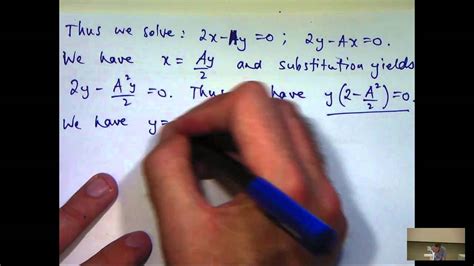 Thus we solve : 2x-Ay=0 ; 2y-Ax=0.
We have x = Ay/2 and substitution yields
2y - A²y/2 = 0. Thus have y(2-A²/2)=0.
We have y=